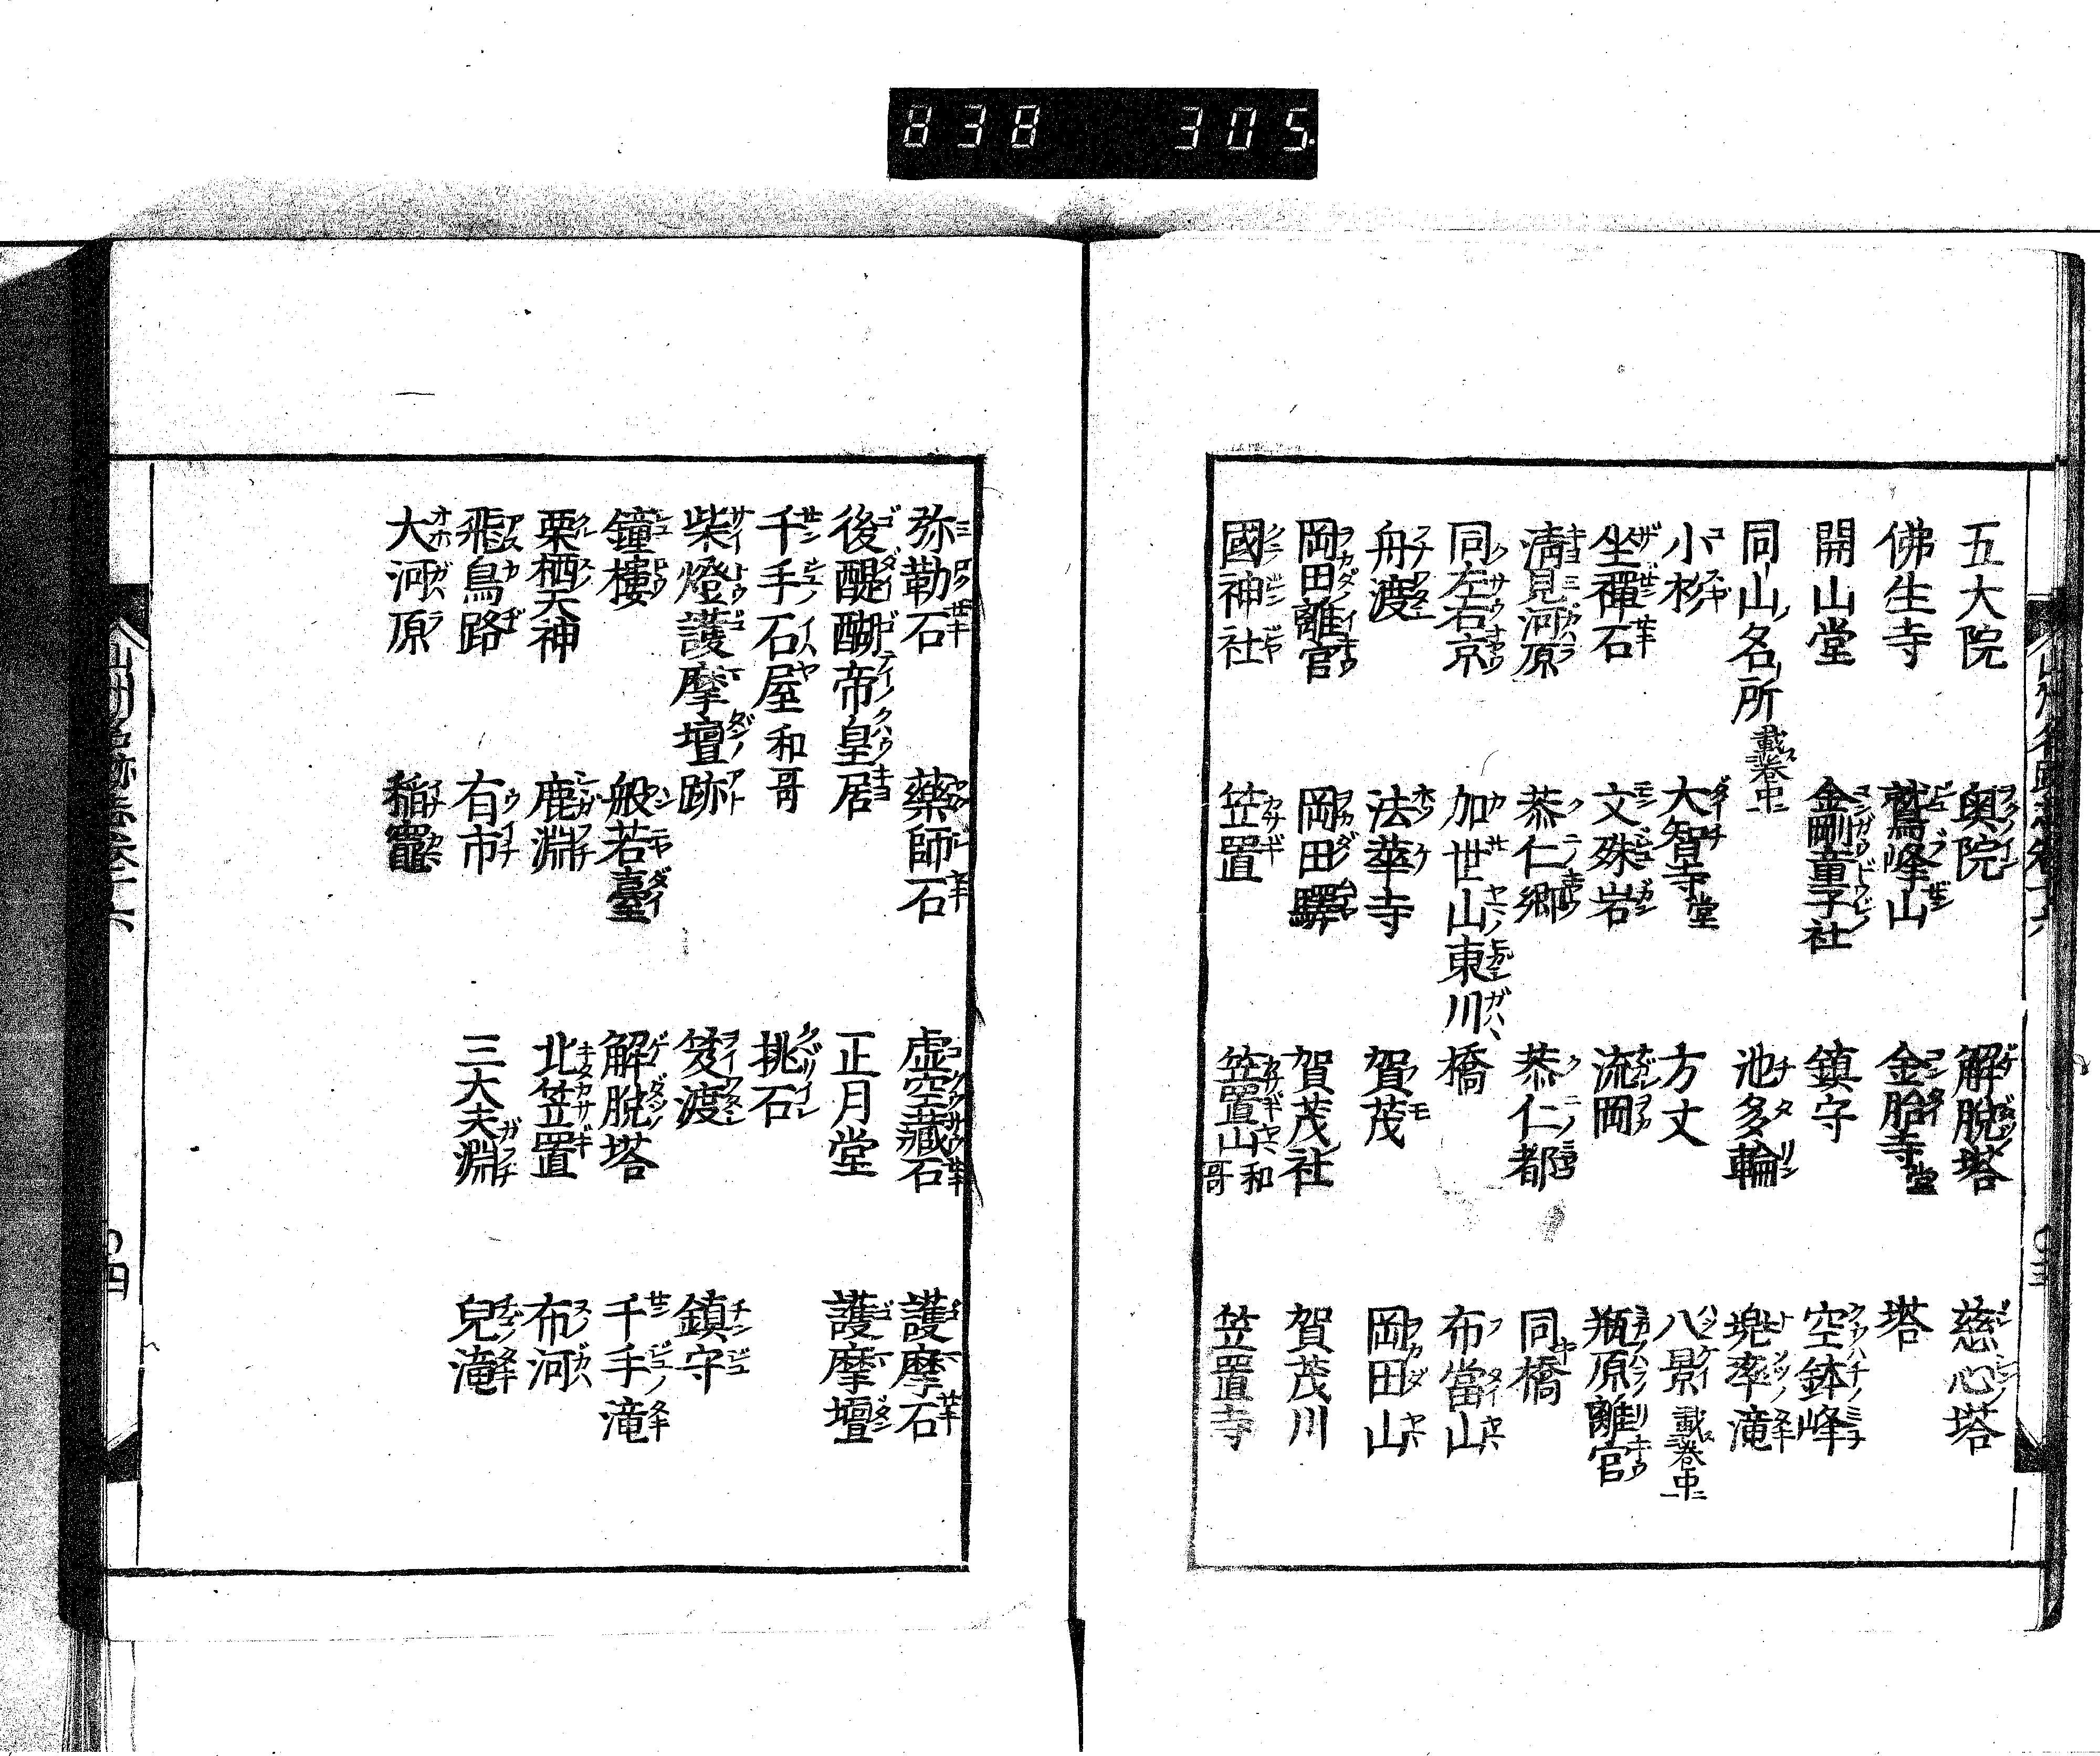 838 305
五大院 奥院 解脱塔 慈心塔
佛生寺 鷲峰山 金胎寺堂 塔
開山堂 金剛童子社 鎮守 空鉢峰
同山名所載巻中 池多輪 兜率滝
小杉 大智寺堂 方丈 八景載巻中
坐禪石 文殊岩 流岡 瓶原離宮
清見河原 恭仁郷 恭仁都 同橋
同左右京 加世山東川橋 布當山
舟渡 法華寺 賀茂 岡田山
岡田離宮 岡田驛 賀茂社 賀茂川
國神社 笠置 笠置山和哥 笠置寺
弥勒石 藥師石 虚空藏石 護摩石
後醍醐帝皇居 正月堂 護摩壇
千手石屋和哥 挑石
柴燈護摩壇跡 笈渡 鎮守
鐘樓 般若臺 解脱塔 千手滝
栗栖天神 鹿淵 北笠置 布河
飛鳥路 有市 三大夫淵 兒滝
大河原 稲竈
四